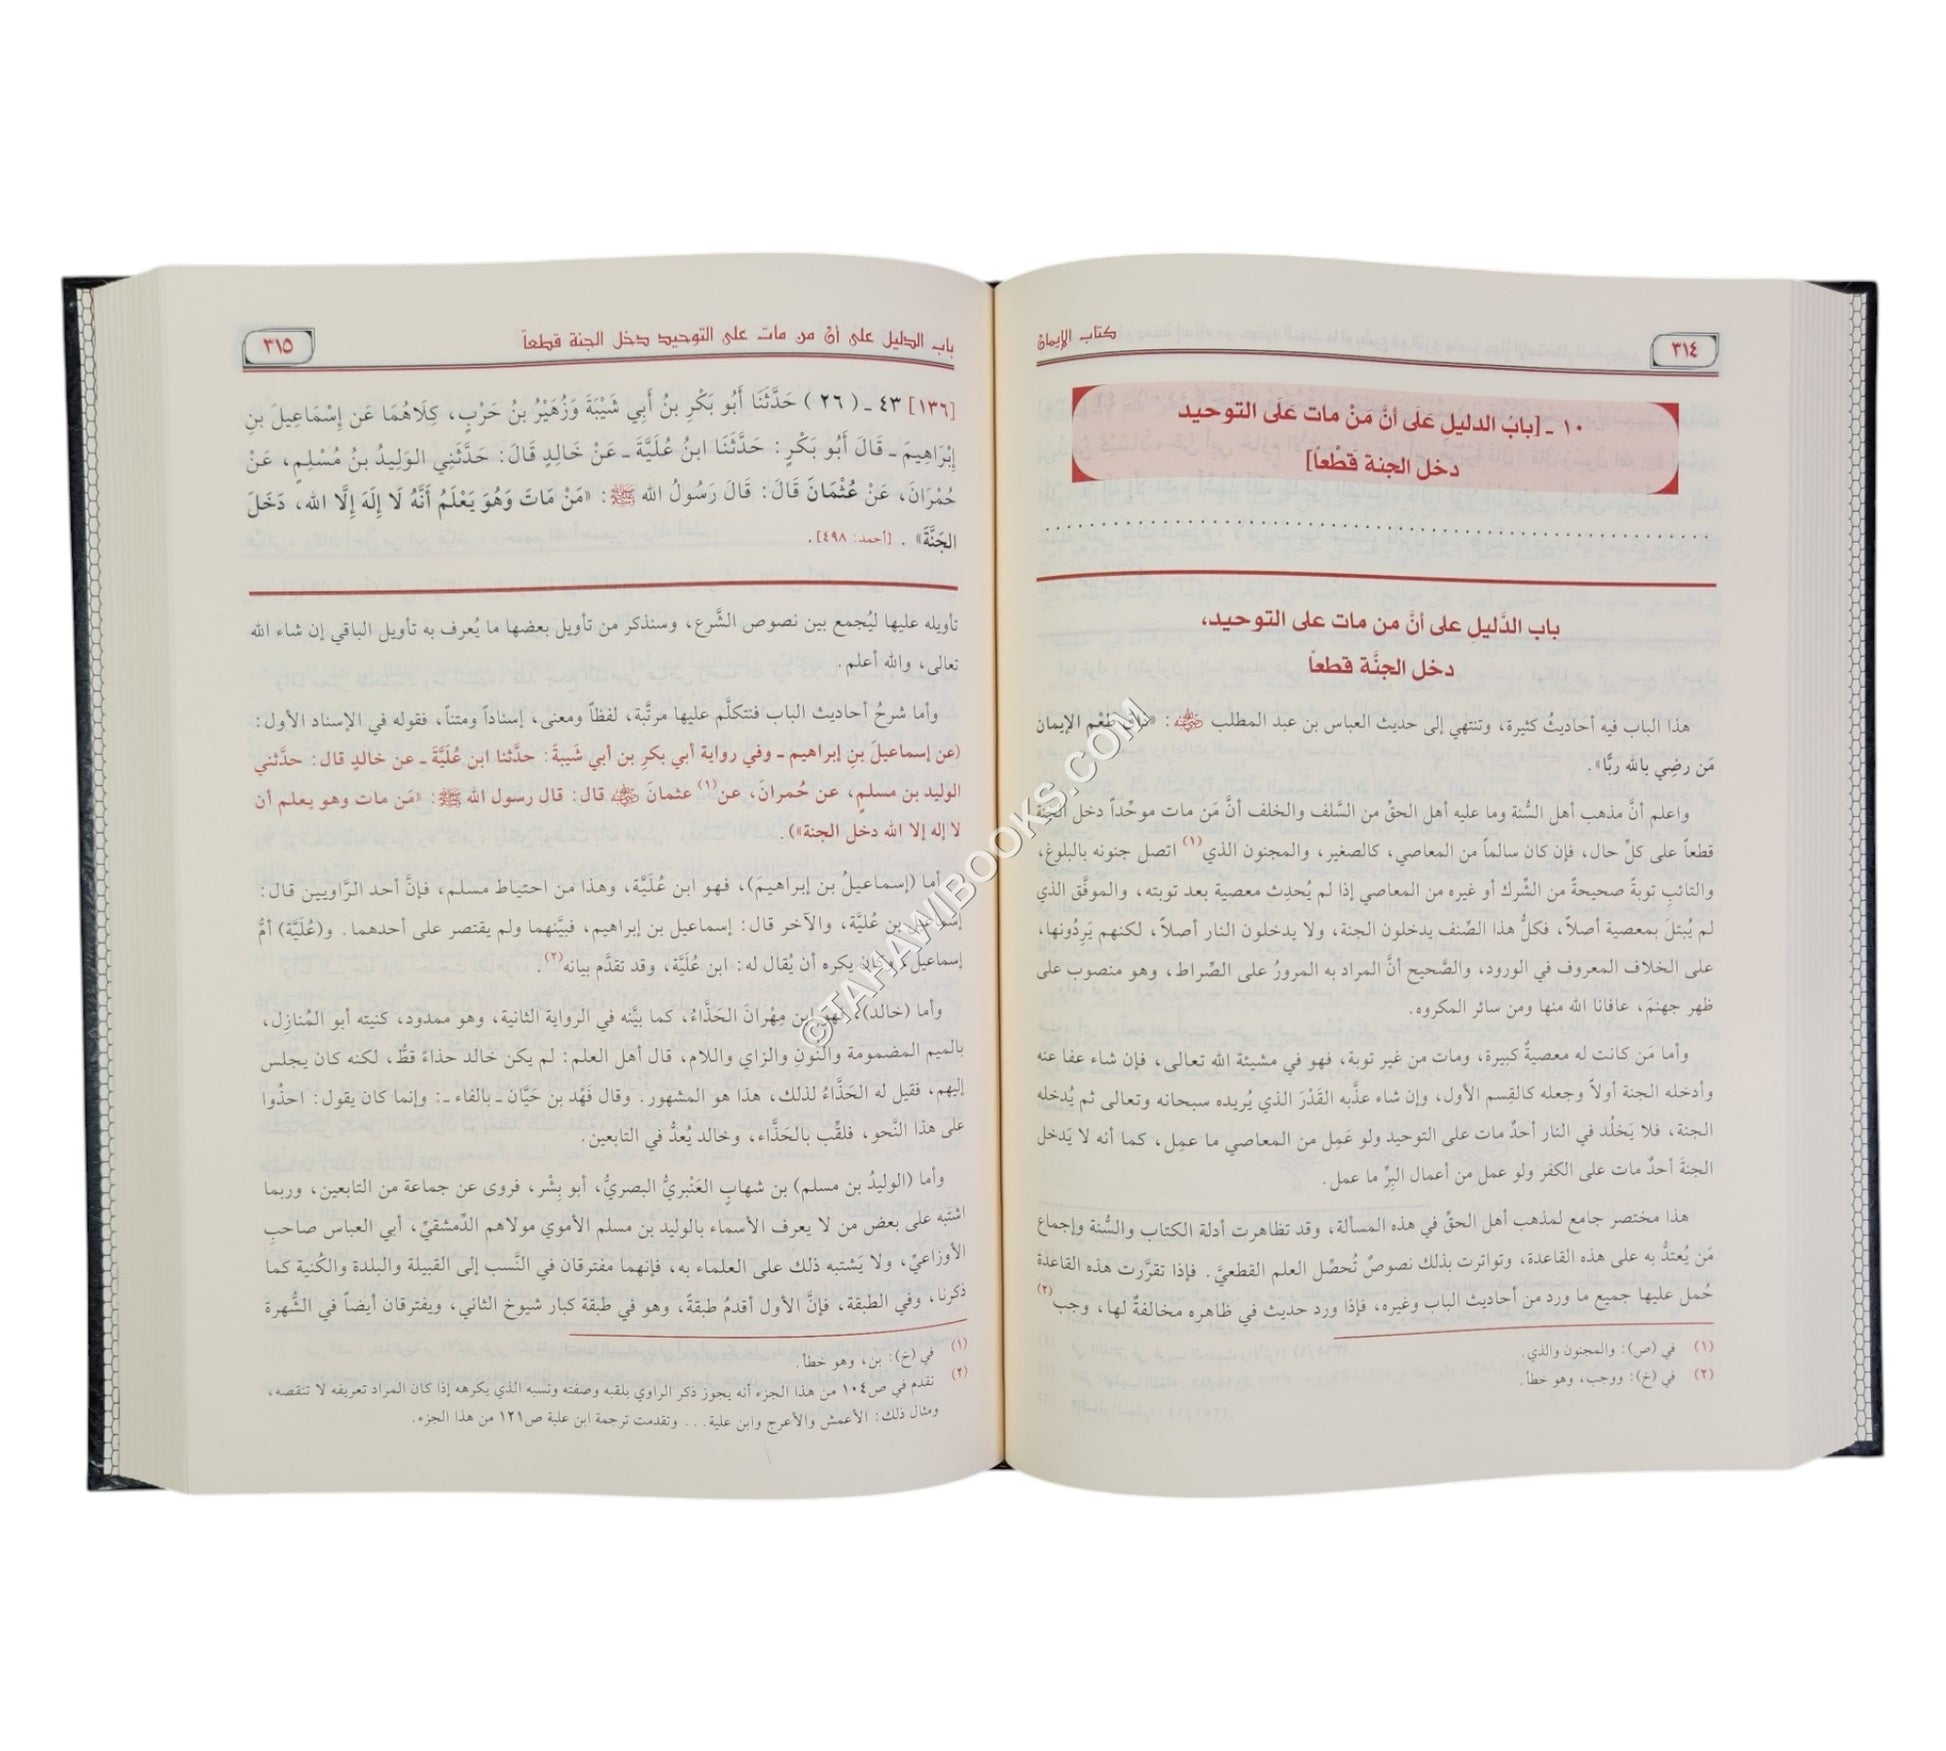 ٣١٤
كتاب الإيمان
١٠ ـ [بابُ الدليلِ عَلَى أنَّ مَنْ مات عَلَى التوحيد
دخل الجنة قَطْعاً]
باب الدَّليلِ على أنَّ من مات على التوحيد،
دخل الجنَّة قطعاً
هذا الباب فيه أحاديثُ كثيرة، وتنتهي إلى حديث العباس بن عبد المطلب ﵁: «ذاق طَعْم الإيمان
مَن رضِي بالله ربًّا».
واعلم أنَّ مذهب أهل السُّنة وما عليه أهل الحقِّ من السَّلف والخلف أنَّ مَن مات موحِّداً دخل الجنة
قطعاً على كلِّ حال، فإن كان سالماً من المعاصي، كالصغير، والمجنون الذي(١) اتصل جنونه بالبلوغ،
والتائبِ توبةً صحيحةً من الشِّرك أو غيره من المعاصي إذا لم يُحدِث معصية بعد توبته، والموفَّق الذي
لم يُبتلَ بمعصية أصلاً، فكلُّ هذا الصِّنف يدخلون الجنة، ولا يدخلون النار أصلاً، لكنهم يَرِدُونها،
على الخلاف المعروف في الورود، والصَّحيح أنَّ المراد به المرورُ على الصِّراط، وهو منصوب على
ظهر جهنمَ، عافانا الله منها ومن سائر المكروه.
وأما مَن كانت له معصيةٌ كبيرة، ومات من غير توبة، فهو في مشيئة الله تعالى، فإن شاء عفا عنه
وأدخله الجنة أولاً وجعله كالقِسم الأول، وإن شاء عذَّبه القَدْرَ الذي يُريده سبحانه وتعالى ثم يُدخله
الجنة، فلا يَخلُد في النار أحدٌ مات على التوحيد ولو عَمِل من المعاصي ما عمِل، كما أنه لا يَدخل
الجنةَ أحدٌ مات على الكفر ولو عمل من أعمال البِرِّ ما عمل.
هذا مختصر جامع لمذهب أهل الحقِّ في هذه المسألة، وقد تظاهرت أدلة الكتاب والسُّنة وإجماع
مَن يُعتدُّ به على هذه القاعدة، وتواترت بذلك نصوصٌ تُحصِّل العلم القطعيَّ. فإذا تقرَّرت هذه القاعدة
حُمل عليها جميع ما ورد من أحاديث الباب وغيره، فإذا ورد حديث في ظاهره مخالفةٌ لها، وجب(٢)
(١) في (ص): والمجنون والذي.
(٢) في (خ): ووجب، وهو خطأ.
باب الدليل على أن من مات على التوحيد دخل الجنة قطعاً
٣١٥
[١٣٦] ٤٣ ـ (٢٦) حَدَّثَنَا أَبُو بَكْرِ بنُ أَبِي شَيْبَةَ وَزُهَيْرُ بنُ حَرْبٍ، كِلَاهُمَا عَن إِسْمَاعِيلَ بنِ
إِبْرَاهِيمَ ـ قَالَ أَبُو بَكْرٍ: حَدَّثَنَا ابنُ عُلَيَّةَ ـ عَنْ خَالِدٍ قَالَ: حَدَّثَنِي الوَلِيدُ بنُ مُسْلِمٍ، عَنْ
حُمْرَانَ، عَنْ عُثْمَانَ قَالَ: قَالَ رَسُولُ الله ﷺ: «مَنْ مَاتَ وَهُوَ يَعْلَمُ أَنَّهُ لَا إِلَهَ إِلَّا الله، دَخَلَ
الجَنَّةَ». [أحمد: ٤٩٨].
تأويله عليها ليُجمع بين نصوص الشَّرع، وسنذكر من تأويل بعضها ما يُعرف به تأويل الباقي إن شاء الله
تعالى، والله أعلم.
وأما شرحُ أحاديث الباب فنتكلَّم عليها مرتَّبة، لفظاً ومعنى، إسناداً ومتناً، فقوله في الإسناد الأول:
(عن إسماعيلَ بنِ إبراهيم ـ وفي رواية أبي بكرِ بن أبي شَيبةَ: حدَّثنا ابن عُلَيَّةَ ـ عن خالدٍ قال: حدَّثني
الوليد بن مسلمٍ، عن حُمرانَ، عن(١) عثمانَ ﵁ قال: قال رسول الله ﷺ: «مَن مات وهو يعلم أن
لا إله إلا الله دخل الجنة»).
أما (إسماعيلُ بن إبراهيمَ)، فهو ابن عُلَيَّة، وهذا من احتياط مسلم، فإنَّ أحد الرَّاويين قال:
إسماعيل بن عُليَّة، والآخر قال: إسماعيل بن إبراهيم، فبيَّنهما ولم يقتصر على أحدهما. و(عُلَيَّة) أمُّ
إسماعيل، وكان يكره أن يُقال له: ابن عُلَيَّة، وقد تقدَّم بيانه(٢).
وأما (خالد)، فهو ابن مِهْرانَ الحَذَّاءُ، كما بيَّنه في الرواية الثانية، وهو ممدود، كنيته أبو المُنازِل،
بالميم المضمومة والنُّونِ والزاي واللام، قال أهل العلم: لم يكن خالد حذاءً قطُّ، لكنه كان يجلس
إليهم، فقيل له الحَذَّاءُ لذلك، هذا هو المشهور. وقال فَهْد بن حَيَّان ـ بالفاء ـ: وإنما كان يقول: احذُوا
على هذا النَّحو، فلقِّب بالحَذَّاء، وخالد يُعدُّ في التابعين.
وأما (الوليدُ بن مسلم) بن شهابٍ العَنْبريُّ البصريُّ، أبو بِشْر، فروى عن جماعة من التابعين، وربما
اشتبه على بعض من لا يعرف الأسماء بالوليد بن مسلم الأموي مولاهم الدِّمشقيِّ، أبي العباس صاحبِ
الأوزاعيِّ، ولا يَشتبه ذلك على العلماء به، فإنهما مفترقان في النَّسب إلى القبيلة والبلدة والكُنية كما
ذكرنا، وفي الطبقة، فإنَّ الأول أقدمُ طبقةً، وهو في طبقة كبار شيوخ الثاني، ويفترقان أيضاً في الشُّهرة
(١) في (خ): بن، وهو خطأ.
(٢) تقدم في ص١٠٤ من هذا الجزء أنه يجوز ذكر الراوي بلقبه وصفته ونسبه الذي يكرهه إذا كان المراد تعريفه لا تنقصه،
ومثال ذلك: الأعمش والأعرج وابن علية... وتقدمت ترجمة ابن علية ص١٢١ من هذا الجزء.
©TAHAWIBOOKS.COM